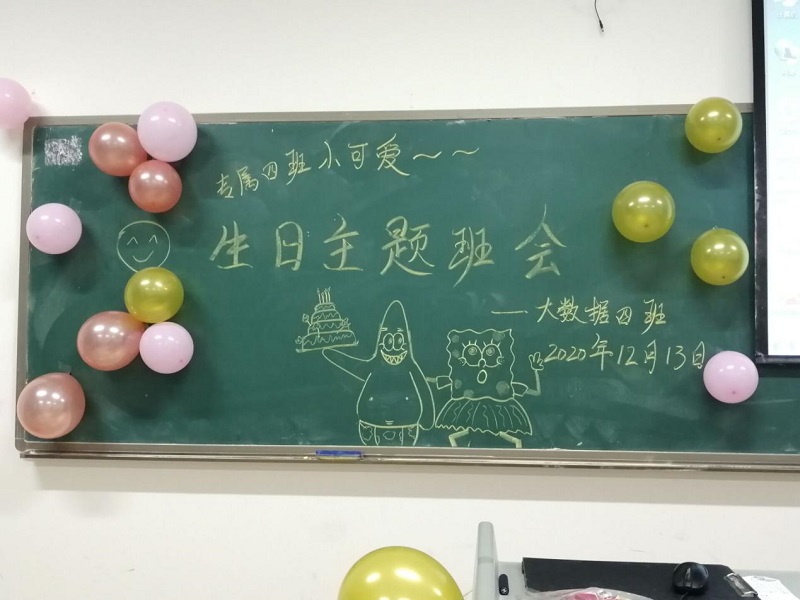 专属四班小可爱～～
生日主题班会
—大数据四班
2020年12月13日